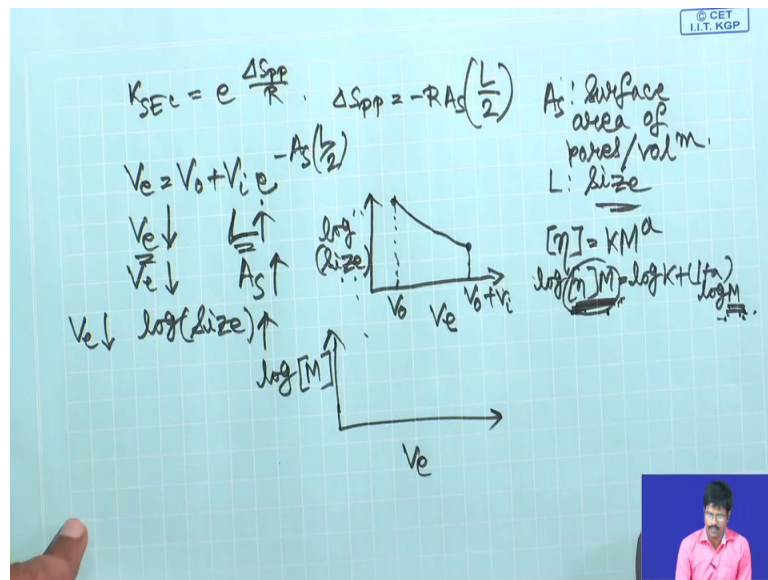 © CET
I.I.T. KGP
K_SEC = e^(ΔSpp/R) . ΔSpp = -R As (L/2)
As: Surface
area of
pores/vol m.
L: Size
Ve = V0 + Vi e^(-As(L/2))
Ve↓ L↑
Ve↓ As↑
Ve↓ log(Size)↑
log
(Size)
V0 Ve V0+Vi
[η] = KM^a
log[η]M = logK+(1+a)
logM
log[M]
Ve